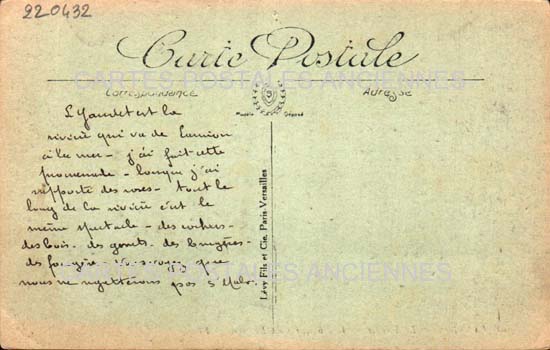 220432
Carte Postale
CARTES POSTALES ANCIENNES
Correspondance
Adresse
Modèle Déposé
L'Yaudet est la
rivière qui va de Lannion
à la mer - j'ai fait cette
promenade - lorsque j'ai
rapporté des roses - tout le
long de la rivière c'est le
même spectacle - des rochers -
des bois - des genêts - des bruyères -
des fougères - vous voyez que
nous ne regretterons pas St Malo.
CARTES POSTALES ANCIENNES
Lévy Fils et Cie, Paris-Versailles